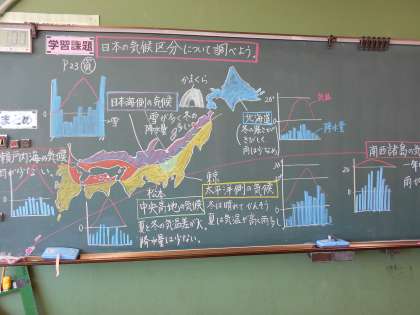 学習課題
日本の気候区分について調べよう。
P23
かまくら
日本海側の気候
雪が多く冬の
降水量
雪
北海道
冬の寒さが
きびしく
雨は少なめ
20°
0
気温
降水量
瀬戸内海の気候
雨が少ない。
南西諸島の気
東京
太平洋側の気候
冬は晴れてかんそう
夏は気温が高く雨多し
松本
中央高地の気候
夏と冬の気温差が大
降水量は少ない。
20
0